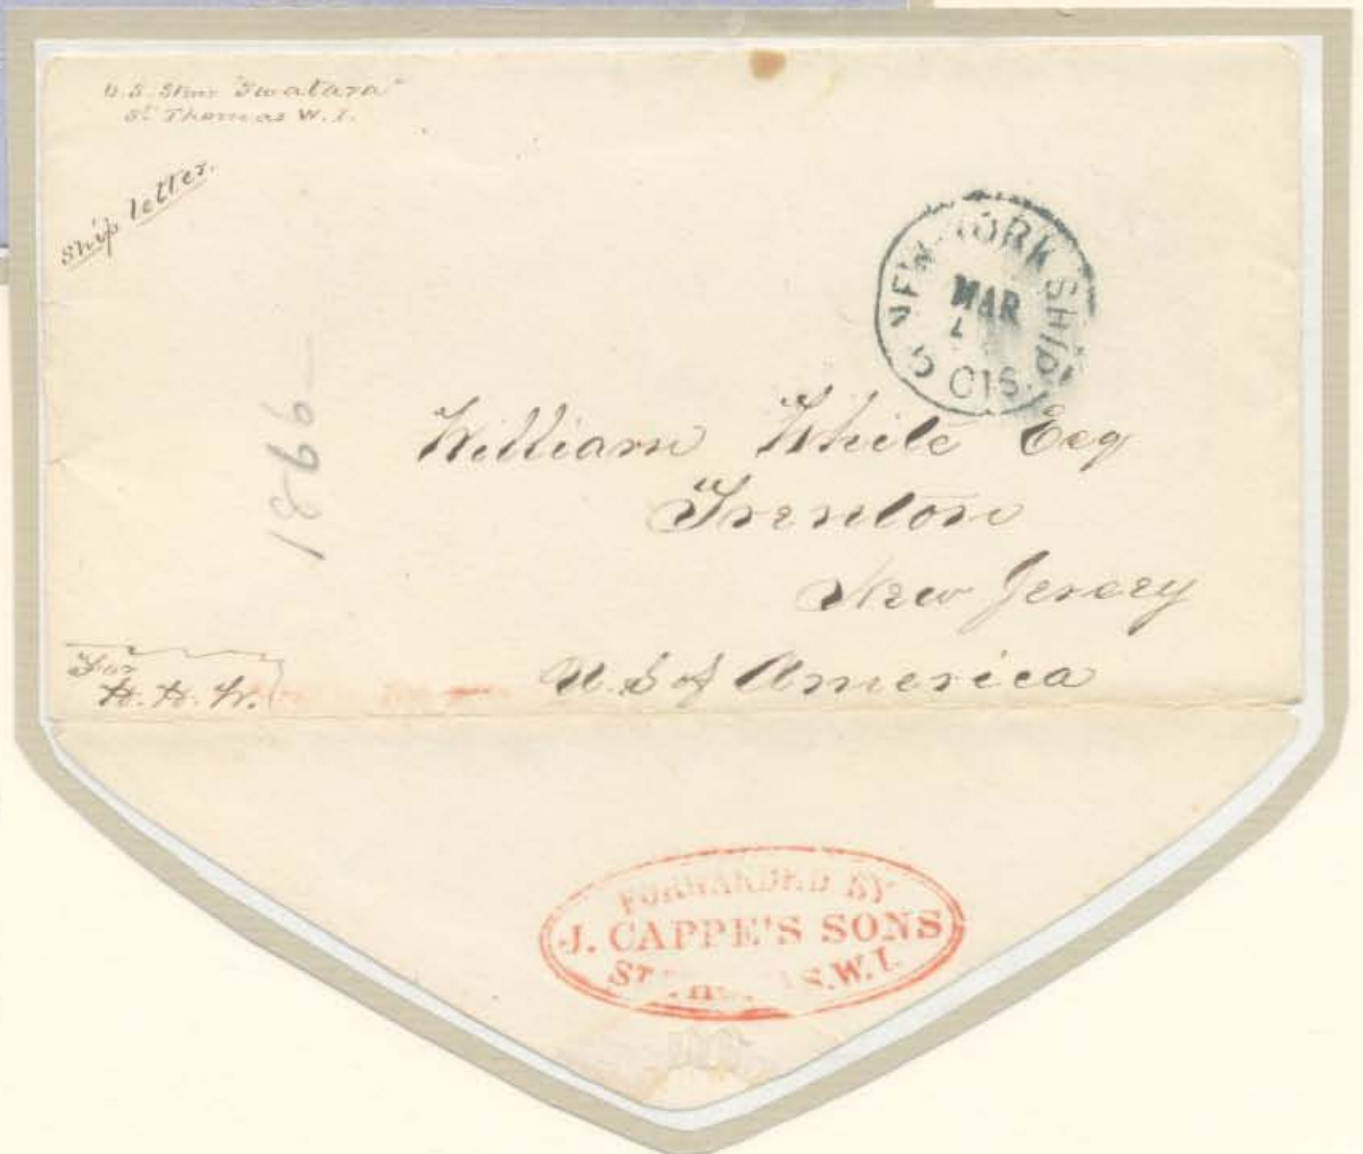 U.S. Stmr "Swatara"
St Thomas W.I.
Ship letter.
NEW-YORK SHIP
MAR
6 CTS.
1866
William White Esq
Trenton
New Jersey
U.S of America
For
H. H. W.
FORWARDED BY
J. CAPPE'S SONS
ST S.W.I.